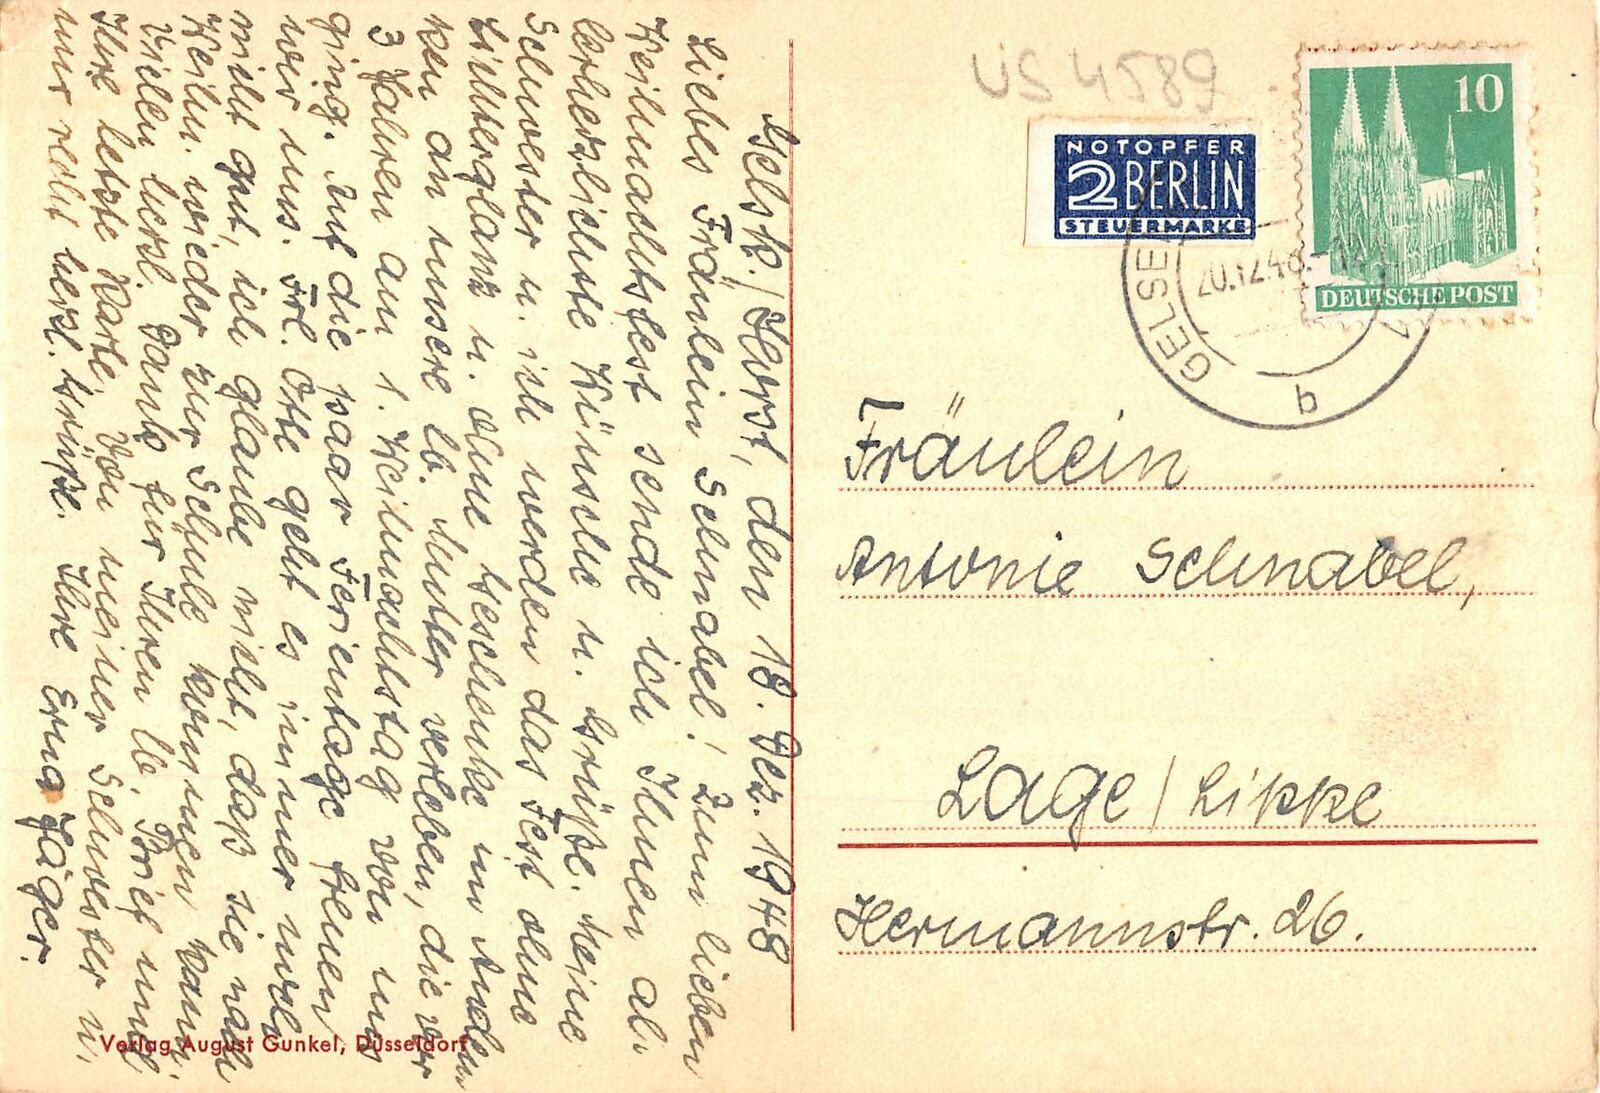 Gelsk./Horst, den 18. Dez. 1948
Liebes Fräulein Schnabel! Zum lieben
Weihnachtsfest sende ich Ihnen al-
lerherzlichste Wünsche u. Grüße. Meine
Schwester u. ich werden das Fest ohne
Lichterglanz u. ohne Geschenke im Anden
ken an unsere lb. Mutter verleben, die vor
3 Jahren am 1. Weihnachtstag von uns
ging. Auf die paar Ferientage freuen
wir uns. Frl. Otte geht es immer noch
nicht gut, ich glaube nicht, daß sie nach
Weihn. wieder zur Schule kommen kann.
Vielen herzl. Dank für Ihren lb. Brief und
Ihre letzte Karte. Von meiner Schwester u.
mir recht herzl. Grüße. Ihre Erna Jäger.
Verlag August Gunkel, Düsseldorf
US 4589
NOTOPFER
2 BERLIN
STEUERMARKE
10
DEUTSCHE POST
GELSE
20.12.48.-12
b
Fräulein
Antonie Schnabel,
Lage/Lippe
Hermannstr. 26.